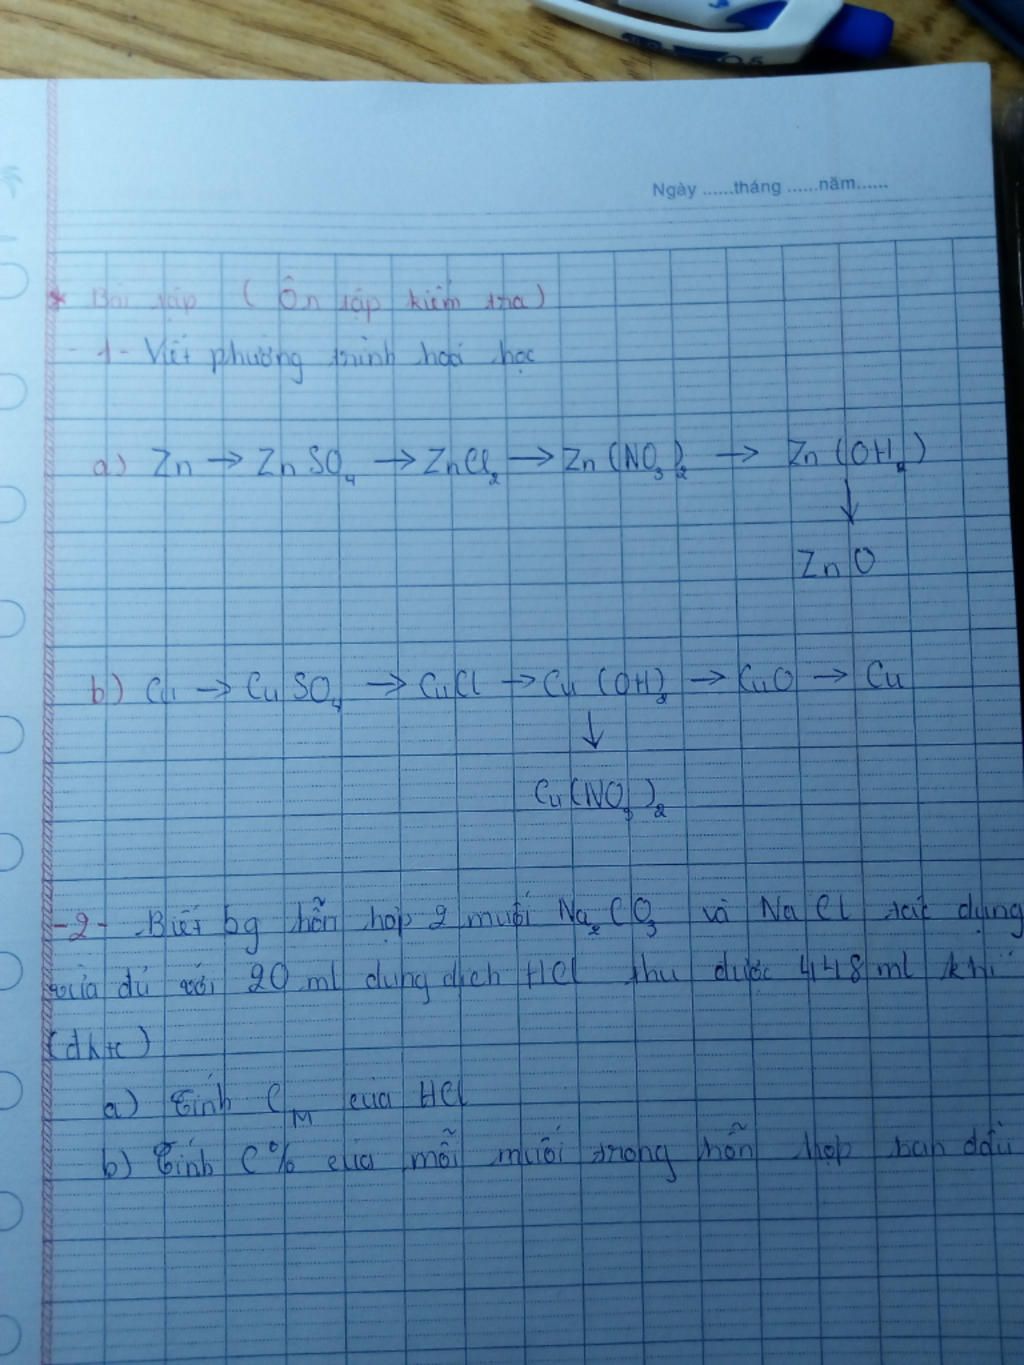 0.5
Ngày ......tháng ......năm......
* Bài tập ( Ôn tập kiểm tra )
- 1 - Viết phương trình hoá học
a) Zn → ZnSO₄ → ZnCl₂ → Zn(NO₃)₂ → Zn(OH₂)
↓
ZnO
b) Cu → CuSO₄ → CuCl → Cu(OH)₂ → CuO → Cu
↓
Cu(NO₃)₂
- 2 - Biết 5g hỗn hợp 2 muối Na₂CO₃ và NaCl tác dụng
vừa đủ với 20 ml dung dịch HCl thu được 448 ml khí
(đktc)
a) Tính C_M của HCl
b) Tính C% của mỗi muối trong hỗn hợp ban đầu